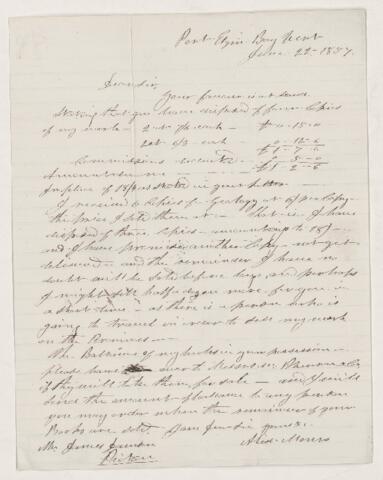 Port Elgin Bay Vert
June 22nd 1857
Dear Sir
Your favour is at hand
Stating that you have disposed of four Copies
of my work - 2 at 7/6 each - £0-15-0
2 at 6/3 each - £0-12-6
£1-7-6
Commissions £0-5-0
Amount £1-2-6
In place of 18/ as stated in your letter
I received Copies of Geology at 6/ per Copy
the price I sold them at - that is I have
disposed of three Copies - amounting to 18/-
and I have promised another Copy - not yet
delivered - and the remainder I have no
doubt will be sold before long and perhaps
I might sell half a dozen more for you in
a short time - as there is a person who is
going to travel in order to sell my work
on the Provinces -
The Balance of my books in your possession -
please hand over to Messrs
if they will take them for sale - and
the amount to any person
you may order when the remainder of your
Books are sold. I am Dear Sir yours
Mr James Alex. Monro
Pictou